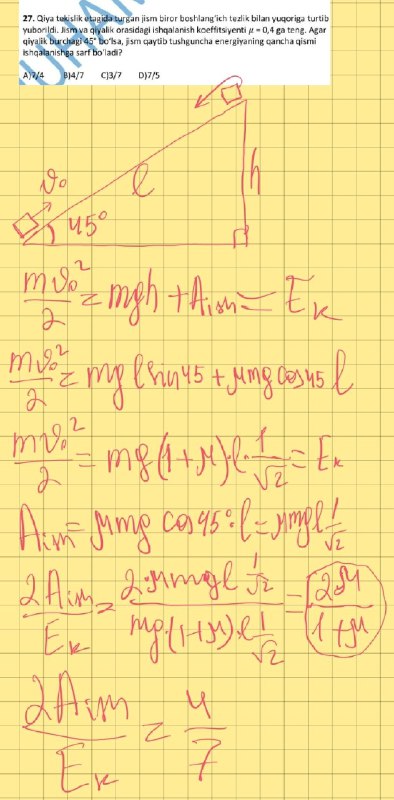 27. Qiya tekislik etagida turgan jism biror boshlang‘ich tezlik bilan yuqoriga turtib
yuborildi. Jism va qiyalik orasidagi ishqalanish koeffitsiyenti μ = 0,4 ga teng. Agar
qiyalik burchagi 45° bo‘lsa, jism qaytib tushguncha energiyaning qancha qismi
ishqalanishga sarf bo‘ladi?
A)7/4 B)4/7 C)3/7 D)7/5
ϑ₀ l h
45°
mϑ₀²/2 = mgh + Aish = Eₖ
mϑ₀²/2 = mg l sin45 + μmg cos45 l
mϑ₀²/2 = mg(1+μ)·l·1/√2 = Eₖ
Aish = μmg cos45°·l = μmgl 1/√2
2Aish/Eₖ = 2·μmgl 1/√2 / mg·(1+μ)·l 1/√2 = 2μ/1+μ
2Aish/Eₖ = 4/7